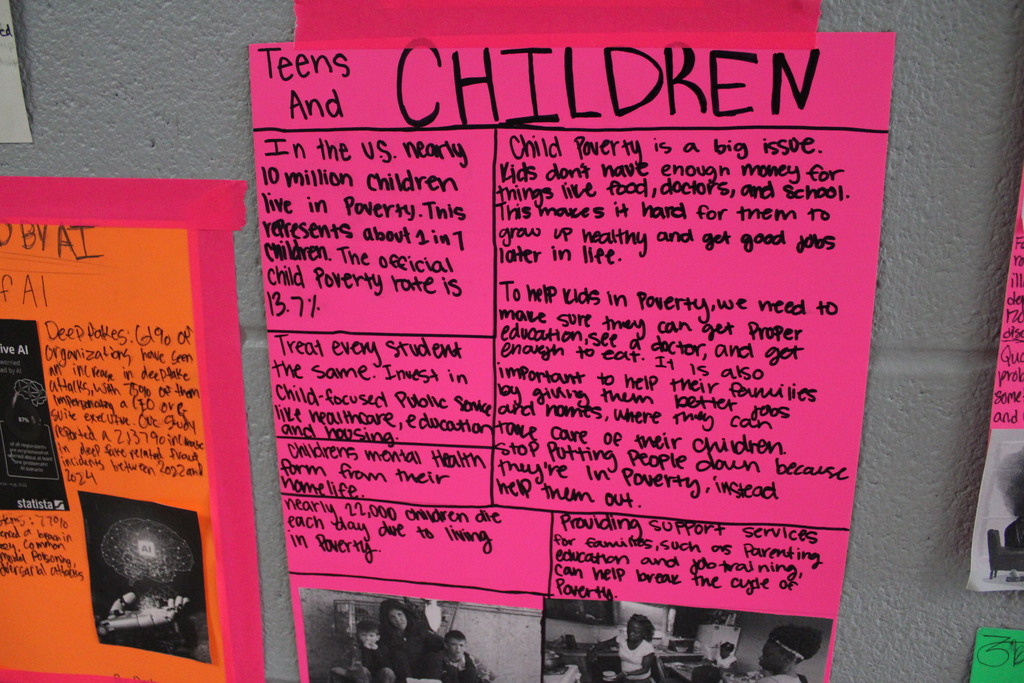 Teens
And
CHILDREN
In the U.S. nearly
10 million children
live in Poverty. This
represents about 1 in 7
children. The official
Child Poverty rate is
13.7%
Treat every student
the same. Invest in
Child-focused Public Service
like healthcare, education
and housing.
Childrens mental Health
form from their
home life.
nearly 22,000 children die
each day due to living
in Poverty.
Child Poverty is a big issue.
Kids don't have enough money for
things like food, doctors, and school.
This makes it hard for them to
grow up healthy and get good jobs
later in life.
To help kids in Poverty, we need to
make sure they can get Proper
education, see a doctor, and get
enough to eat. It is also
important to help their families
by giving them better jobs
and homes, where they can
take care of their children.
Stop Putting People down because
they're in Poverty, instead
help them out.
Providing support services
for families, such as Parenting
education and job training,
can help break the cycle of
Poverty.
BY AI
of AI
Deepfakes: 61% of
organizations have seen
an increase in deepfake
attacks, with 75% of them
impersonating a CEO or
suite executive. Our study
reported a 2137% increase
in deep fake related
incidents between 2022 and
2024
ive AI
67%
statista
77%
AI